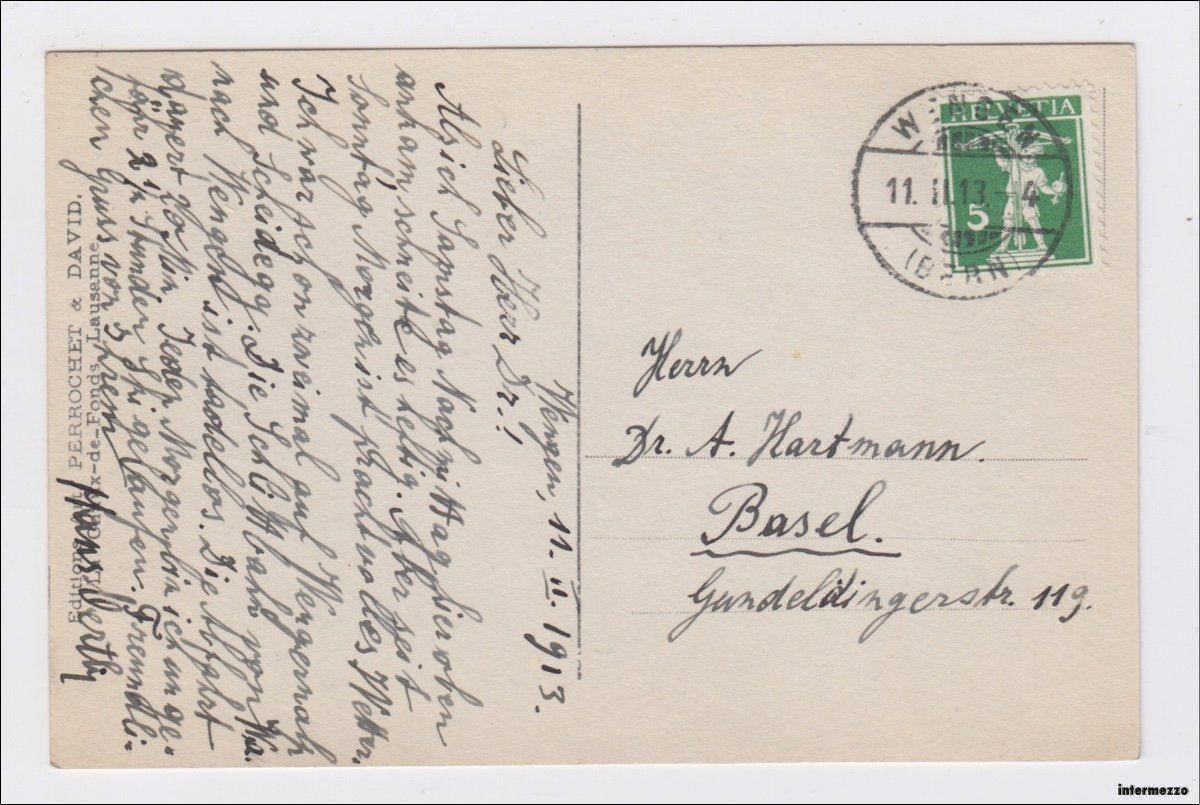 Wengen, 11. II. 1913.
Lieber Herr Dr.!
Als ich Samstag Nachmittag hier oben
ankam schneite es heftig. Aber seit
Sonntag Morgen ist prachtvolles Wetter.
Ich war schon zweimal auf Wengernalp
und Scheidegg. Die Schlittbahn von
nach Wengen ist tadellos. Die Abfahrt
dauert 20 Min. Jeden Morgen bin ich unge-
fähr 2 1/2 Stunden Ski gelaufen. Freundli-
chen Gruss von Ihrem
Hans
Editions d'Art PERROCHET & DAVID.
La Chaux-de-Fonds, Lausanne
HELVETIA
5
WENGEN
11. II. 13. - 4
(BERN)
Herrn
Dr. A. Hartmann.
Basel.
Gundeldingerstr. 119.
intermezzo